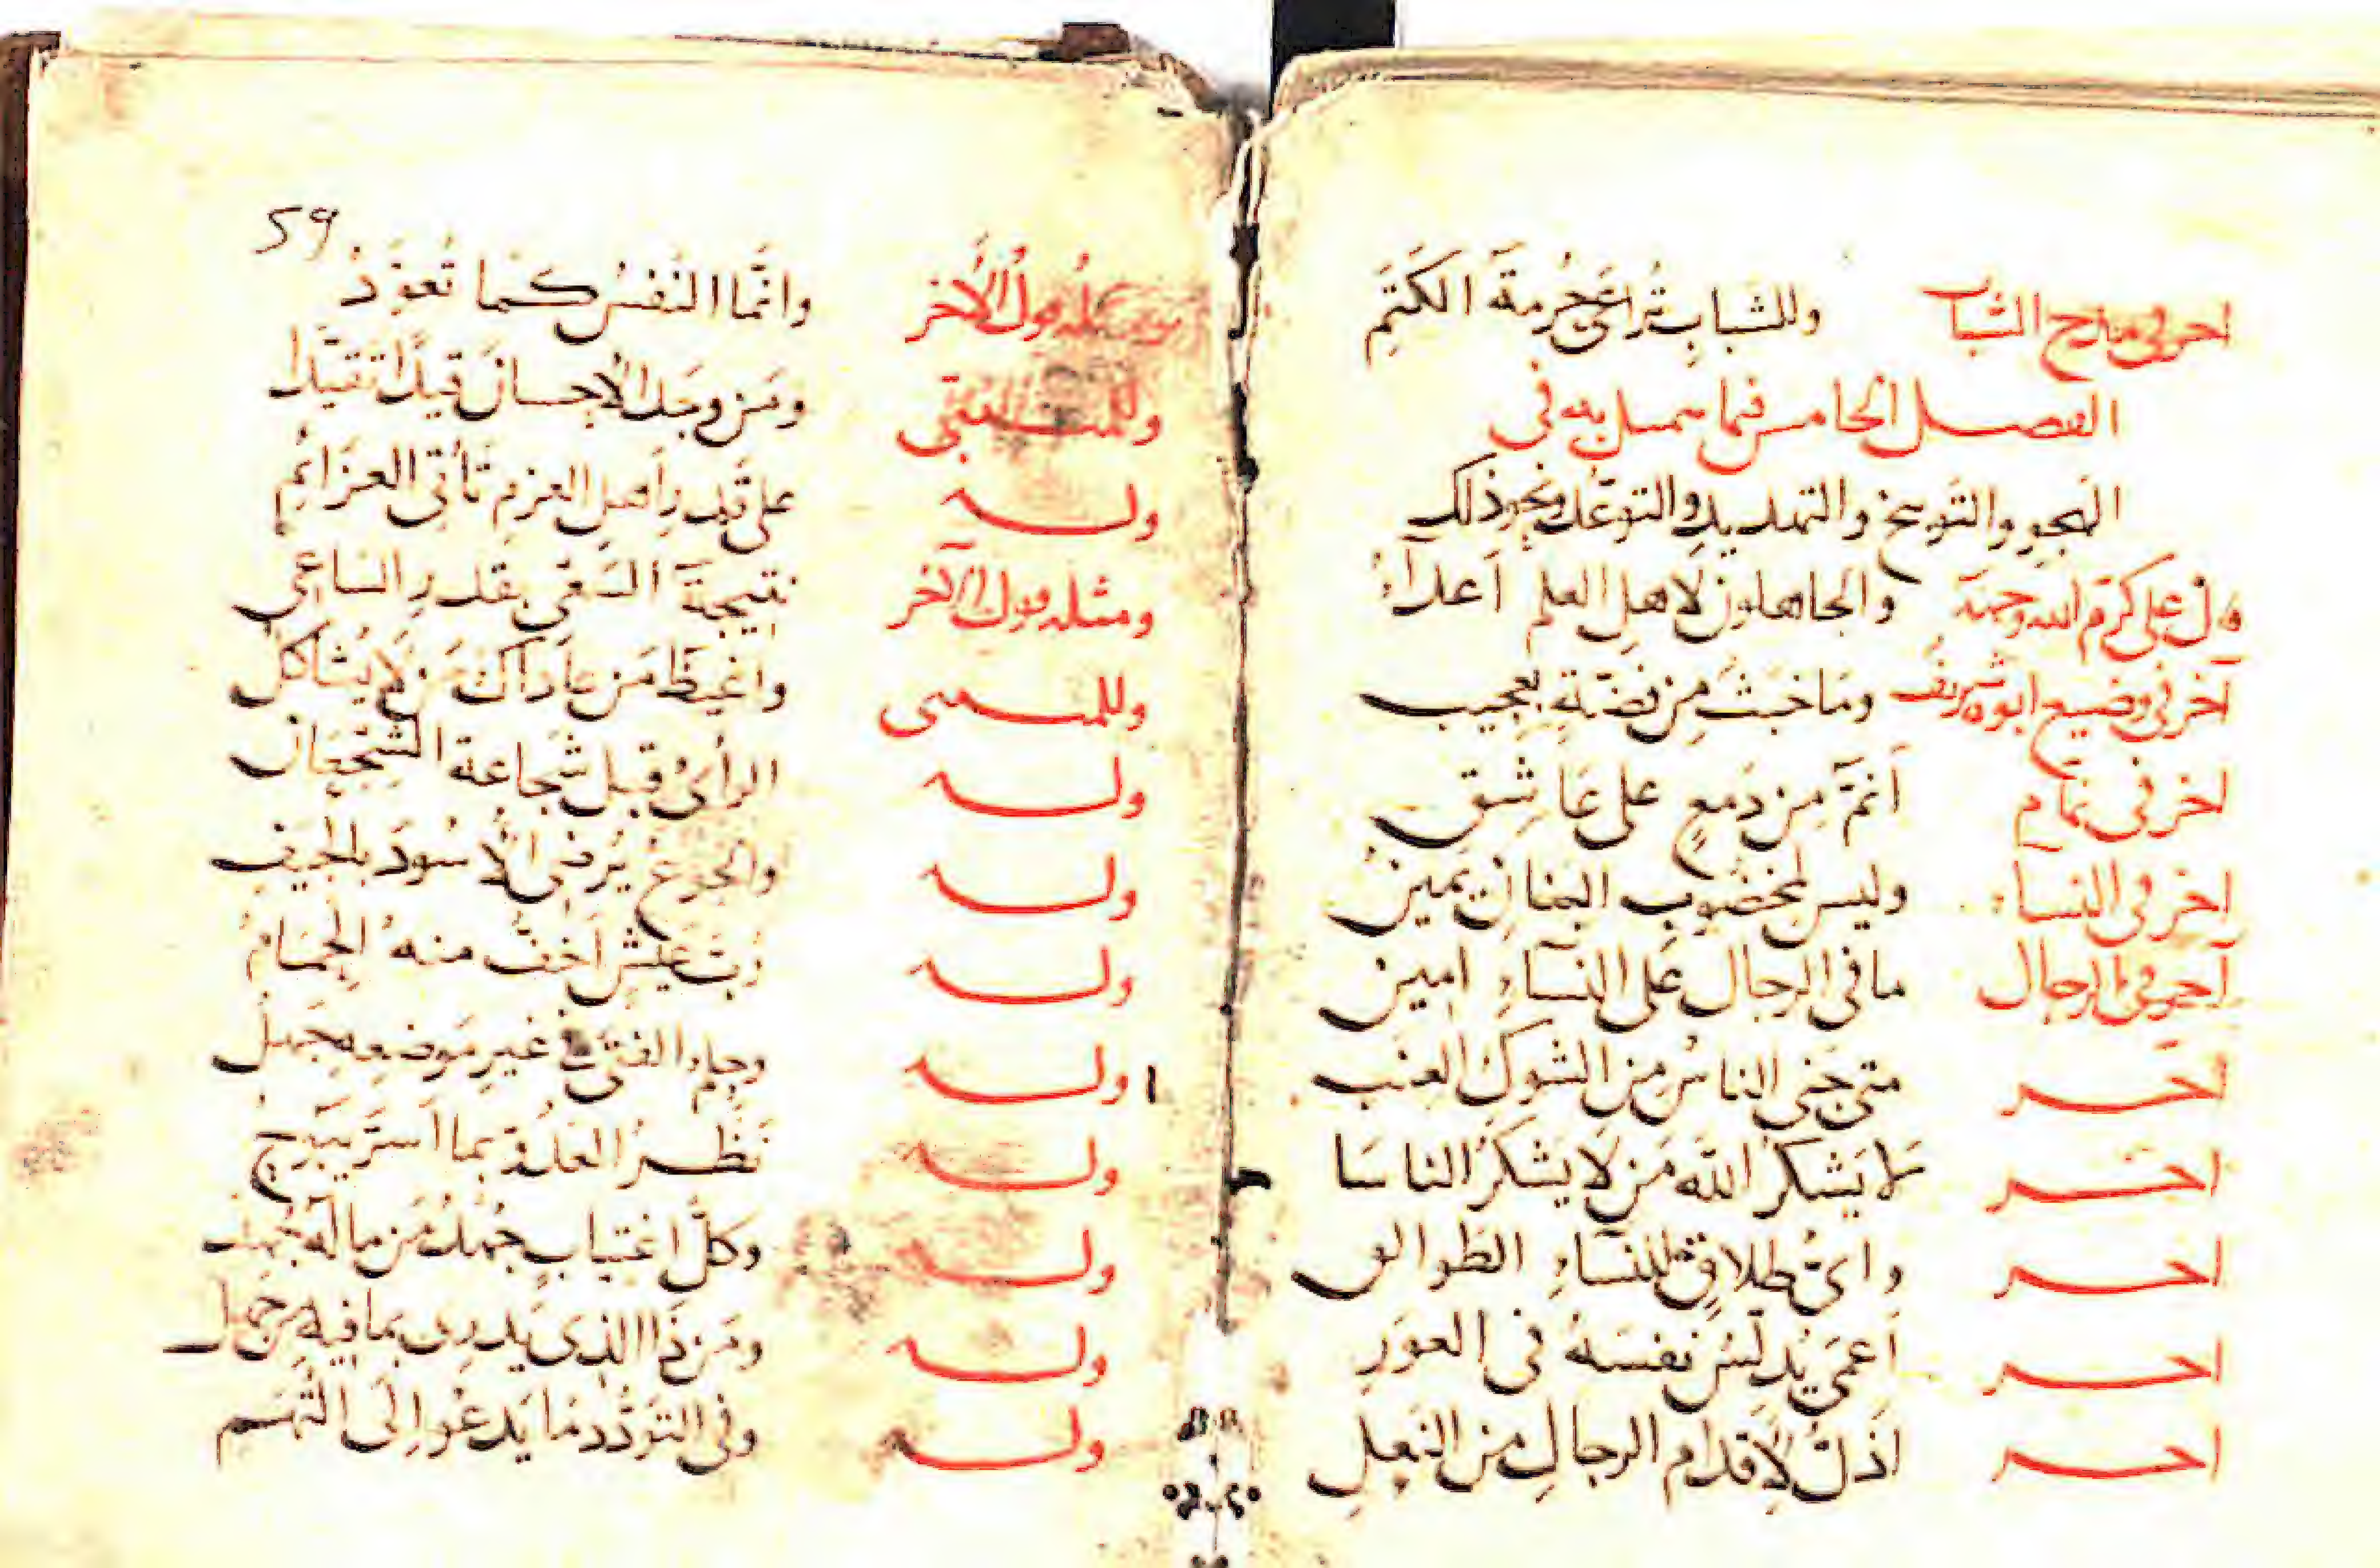 اخر فى مدح الشباب وللشباب تُراعى حُرمةُ الكَتَمِ
الفصل الخامس فيما يتمثل به فى
الهجو والتوبيخ والتهديد والتوعّد ونحو ذلك
قال على كرّم الله وجهه والجاهلون لاهل العلم اَعداءُ
آخر فى وضيع ابوه شريف ومَا خبَثٌ مِن فضّةٍ بعجيب
اخر فى نمّام اَنمّ مِن دَمعٍ على عَاشِق
اخر فى النساء وليس لمخضوب البنان يمين
آخر فى الرجال ما فى الرجال عَلى النسآءِ امين
اخر متى جَنى الناسُ مِن الشوكِ العنب
اخر لا يَشكرُ اللهَ مَن لا يشكرُ الناسَا
اخر واىُّ طلاقٍ للنسآءِ الطوالق
اخر اَعمى يُدلّسُ نفسَهُ فى العوَرِ
اخر اَذلُّ لاَقدام الرجالِ من النعلِ
59
قول الآخر وانّما النَفْسُ كمَا تُعوَّدُ
وللمتنبّى ومَن وجَد الاحسانَ قيدًا تقيّدا
ولـه على قَدرِ اَهلِ العزمِ تَأتى العزَائمُ
ومثله قول الآخر نتيجةُ السَعْىِ بقدرِ الساعى
وللمتنبى واغيَظُ مَن عادَاكَ مَن لا يُشاكلُ
ولـه الرأىُ قبل شَجاعة الشجعان
ولـه والجوعُ يُرضى الاُسُودَ بالجيَف
ولـه رُبّ عَيشٍ اَخفُّ منهُ الحِمَامُ
ولـه وحِلم الفتى فى غيرِ مَوضعِه جَهلُ
ولـه نَظَرُ العَدُوّ بما اَسَرَّ يَبوحُ
ولـه وكلّ اغتيابٍ جُهدُ مَن ما لَه جُهدُ
ولـه ومَن ذَا الذى يَدرِى بمَا فيه مِن جَهل
ولـه وفى التَوَدُّدِ مَا يَدعُوا اِلَى التُّهَمِ